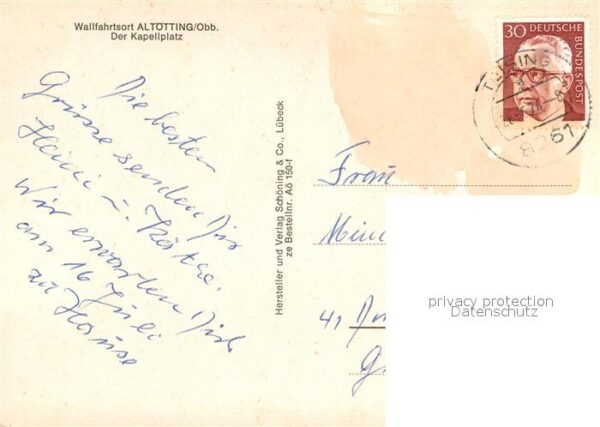 Wallfahrtsort ALTÖTTING/Obb.
Der Kapellplatz
Die besten
Grüsse senden Dir
Heini u. Käthe.
Wir erwarten Dich
am 16 Juli
zu Hause
Hersteller und Verlag Schöning & Co., Lübeck
ze Bestellnr. Aö 150-f
30 DEUTSCHE
BUNDESPOST
8261
Frau
41
privacy protection
Datenschutz